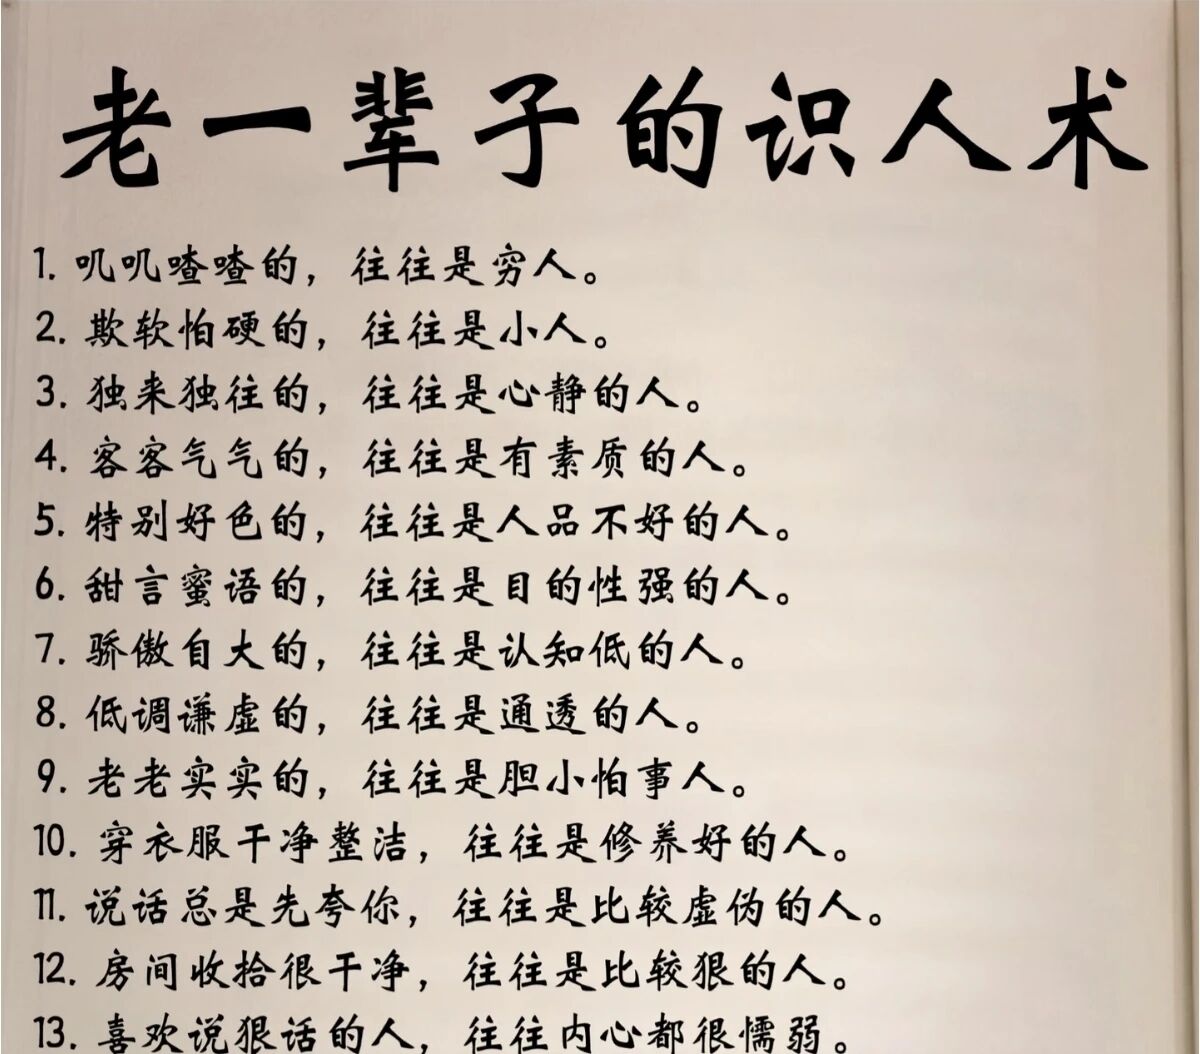 老一辈子的识人术
1. 叽叽喳喳的，往往是穷人。
2. 欺软怕硬的，往往是小人。
3. 独来独往的，往往是心静的人。
4. 客客气气的，往往是有素质的人。
5. 特别好色的，往往是人品不好的人。
6. 甜言蜜语的，往往是目的性强的人。
7. 骄傲自大的，往往是认知低的人。
8. 低调谦虚的，往往是通透的人。
9. 老老实实的，往往是胆小怕事人。
10. 穿衣服干净整洁，往往是修养好的人。
11. 说话总是先夸你，往往是比较虚伪的人。
12. 房间收拾很干净，往往是比较狠的人。
13. 喜欢说狠话的人，往往内心都很懦弱。